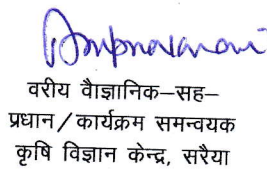 वरीय वैाज्ञानिक–सह–
प्रधान/कार्यक्रम समन्वयक
कृषि विज्ञान केन्द्र, सरैया